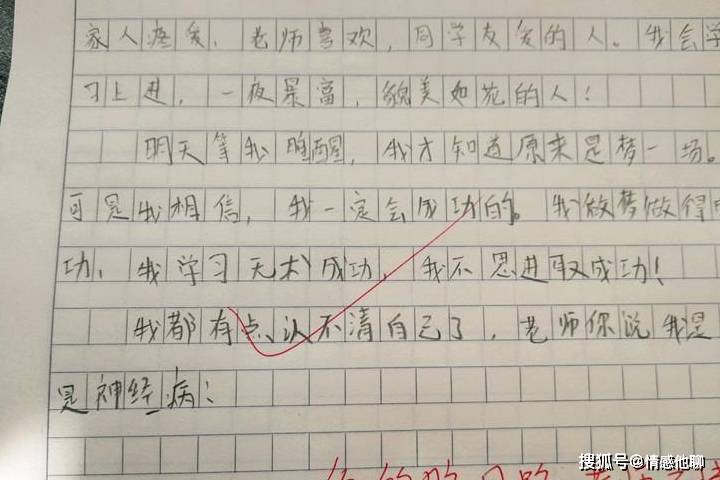 家人疼爱，老师喜欢，同学友爱的人。我会学
习上进，一夜暴富，貌美如花的人！
明天等我睡醒，我才知道原来是梦一场。
可是我相信，我一定会成功的。我做梦做得成
功，我学习无才成功，我不思进取成功！
我都有点认不清自己了，老师你说我是
是神经病！
搜狐号@情感他聊